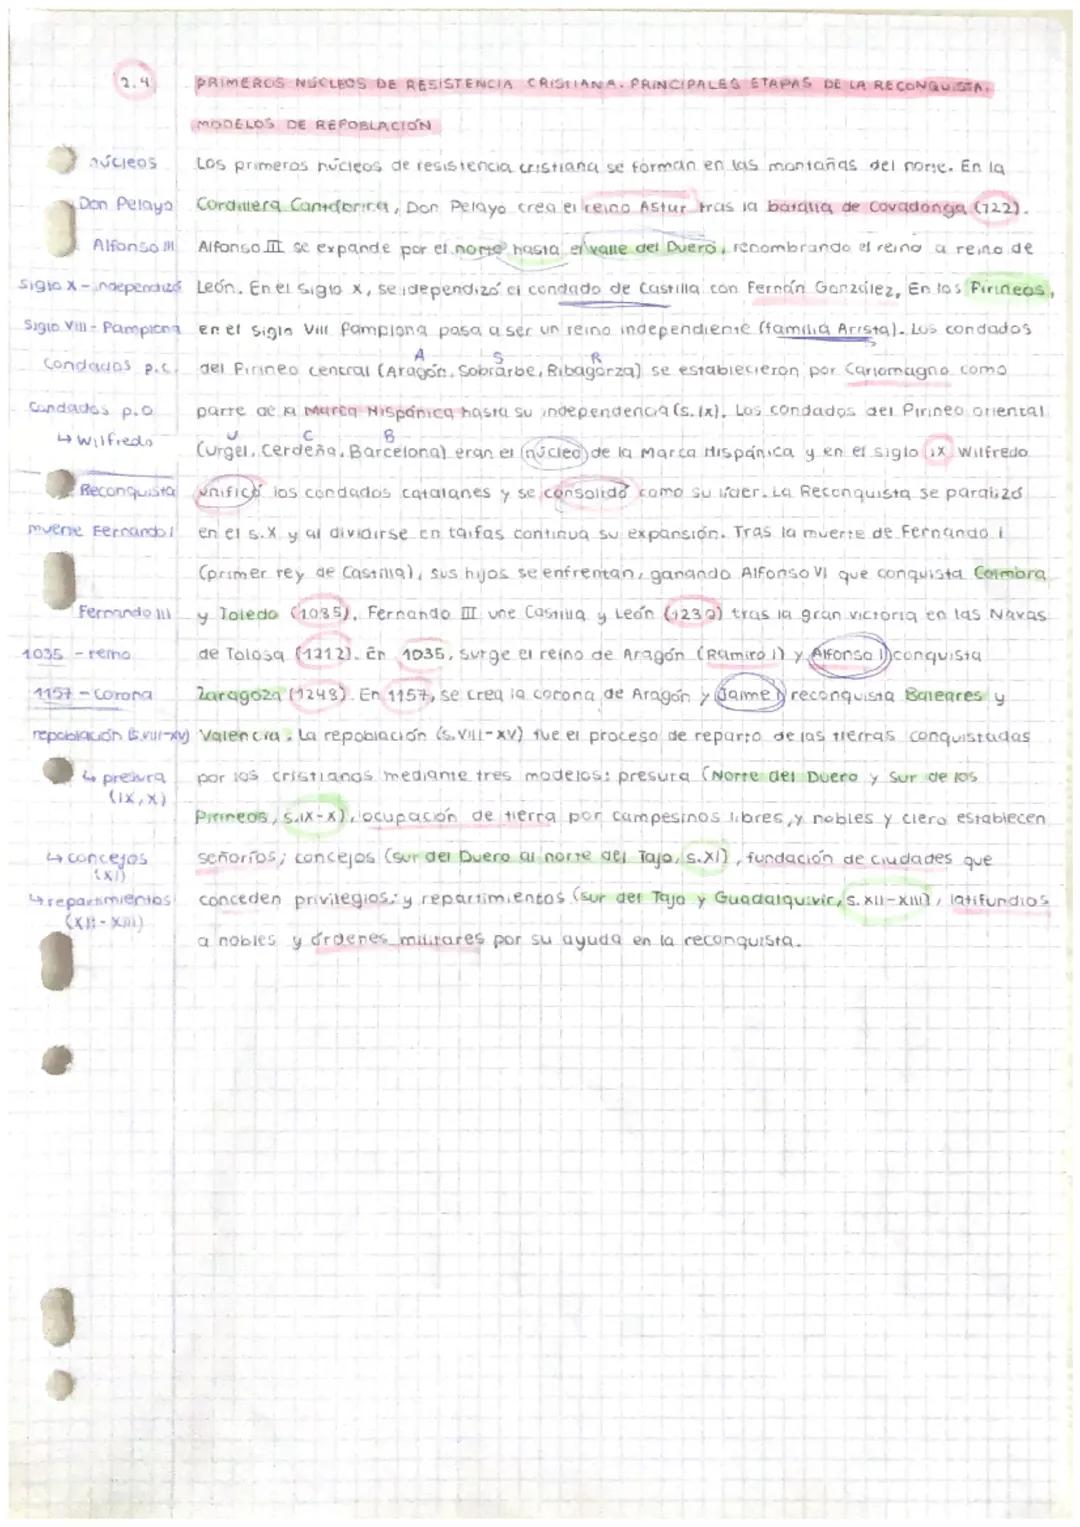 2.4 PRIMEROS NÚCLEOS DE RESISTENCIA CRISTIANA. PRINCIPALES ETAPAS DE LA RECONQUISTA.
MODELOS DE REPOBLACIÓN
núcleos Los primeros núcleos de resistencia cristiana se forman en las montañas del norte. En la
Don Pelayo Cordillera Cantábrica, Don Pelayo crea el reino Astur tras la batalla de Covadonga (722).
Alfonso III Alfonso III se expande por el norte hasta el valle del Duero, renombrando el reino a reino de
Siglo X - independizó León. En el siglo X, se idependizó el condado de Castilla con Fernán González, En los Pirineos,
Siglo VIII - Pamplona en el siglo VIII Pamplona pasa a ser un reino independiente (familia Arista). Los condados
A S R
Condados p.c. del Pirineo central (Aragón, Sobrarbe, Ribagorza) se establecieron por Carlomagno como
Condados p.o parte de la Marca Hispánica hasta su independencia (s. IX). Los condados del Pirineo oriental
U C B
↳ Wilfredo (Urgel, Cerdeña, Barcelona) eran el núcleo de la Marca Hispánica y en el siglo IX Wilfredo
Reconquista unificó los condados catalanes y se consolidó como su líder. La Reconquista se paralizó
muerte Fernando I en el s.X y al dividirse en taifas continua su expansión. Tras la muerte de Fernando I
(primer rey de Castilla), sus hijos se enfrentan, ganando Alfonso VI que conquista Coimbra
Fernando III y Toledo (1085). Fernando III une Castilla y León (1230) tras la gran victoria en las Navas
1035 - reino de Tolosa (1212). En 1035, surge el reino de Aragón (Ramiro I) y Alfonso I conquista
1157 - Corona Zaragoza (1248). En 1157, se crea la corona de Aragón y Jaime I reconquista Baleares y
repoblación (s.VIII-XV) Valencia. La repoblación (s. VIII-XV) fue el proceso de reparto de las tierras conquistadas
↳ presura por los cristianos mediante tres modelos: presura (Norte del Duero y Sur de los
(IX, X)
Pirineos, s.IX-X), ocupación de tierra por campesinos libres, y nobles y clero establecen
↳ concejos señoríos; concejos (sur del Duero al norte del Tajo, s.XI), fundación de ciudades que
(XI)
↳ repartimientos conceden privilegios; y repartimientos (sur del Tajo y Guadalquivir, s. XII-XIII), latifundios
(XII-XIII)
a nobles y órdenes militares por su ayuda en la reconquista.